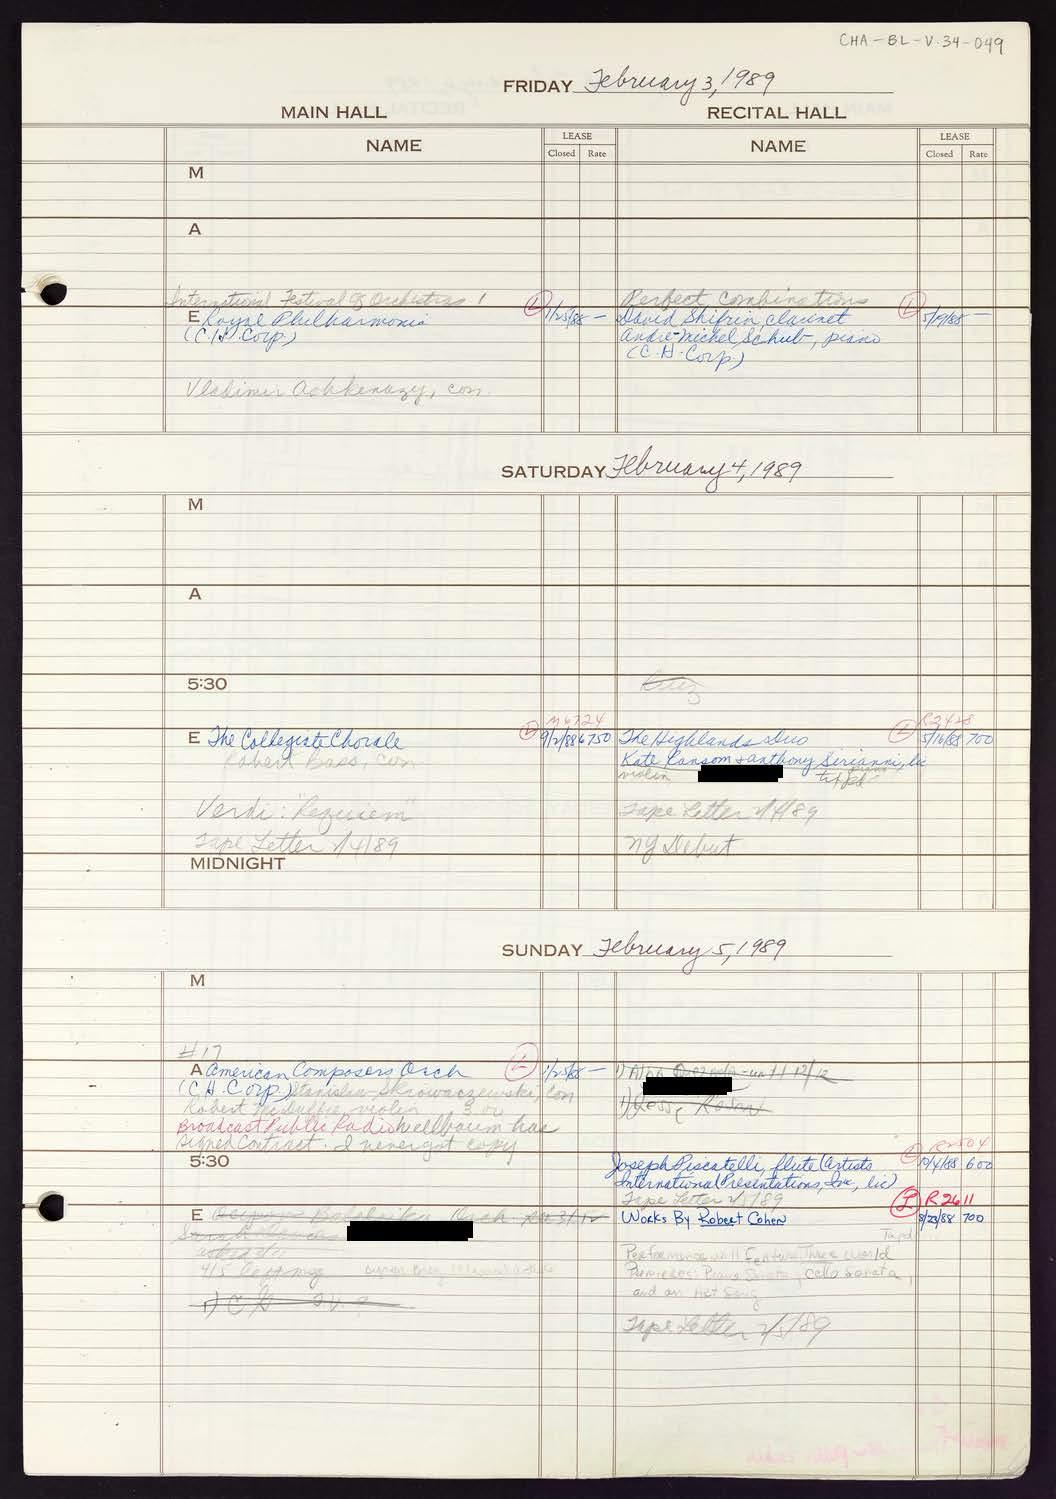 CHA-BL-V.34-049
FRIDAY February 3, 1989
MAIN HALL
RECITAL HALL
NAME
LEASE
Closed Rate
NAME
LEASE
Closed Rate
M
A
International Festival of Orchestras 1
E Royal Philharmonic
(C.H. Corp.)
L 1/25/88 —
Vladimir Ashkenazy, con.
Perfect Combinations
David Shifrin, clarinet
André-Michel Schub, piano
(C.H. Corp.)
L 5/19/88 —
SATURDAY February 4, 1989
M
A
5:30
M6724
E The Collegiate Chorale
L 9/2/88 6750
Robert Bass, con
Verdi: "Requiem"
Tape Letter 2/4/89
MIDNIGHT
R2428
The Highlands Duo
L 5/16/88 700
Kate Ransom & Anthony Sirianni, lic
violin
piano
Tape Letter 2/4/89
NY Debut
SUNDAY February 5, 1989
M
#17
A American Composers Orch
L 1/25/88 —
(C.H. Corp.) Stanislaw Skrowaczewski, con
Robert McDuffie, violin 3:00
Broadcast Public Radio Wellbaum has
signed Contract. I never got copy
1) Alan
12/12
1) Jesse
5:30
R2504
Joseph Piscatelli, flute (Artists
L 10/4/88 600
International Presentations, Inc., lic)
Tape Letter 2/ /89
E
Balalaika Orch
3/12
L R2611
Works By Robert Cohen
8/23/88 700
Taped
Performance will feature Three world
Premieres: Piano Sonata, cello Sonata,
and an Art Song
4/5
1) C H T.V. ?
Tape Letter 2/5/89